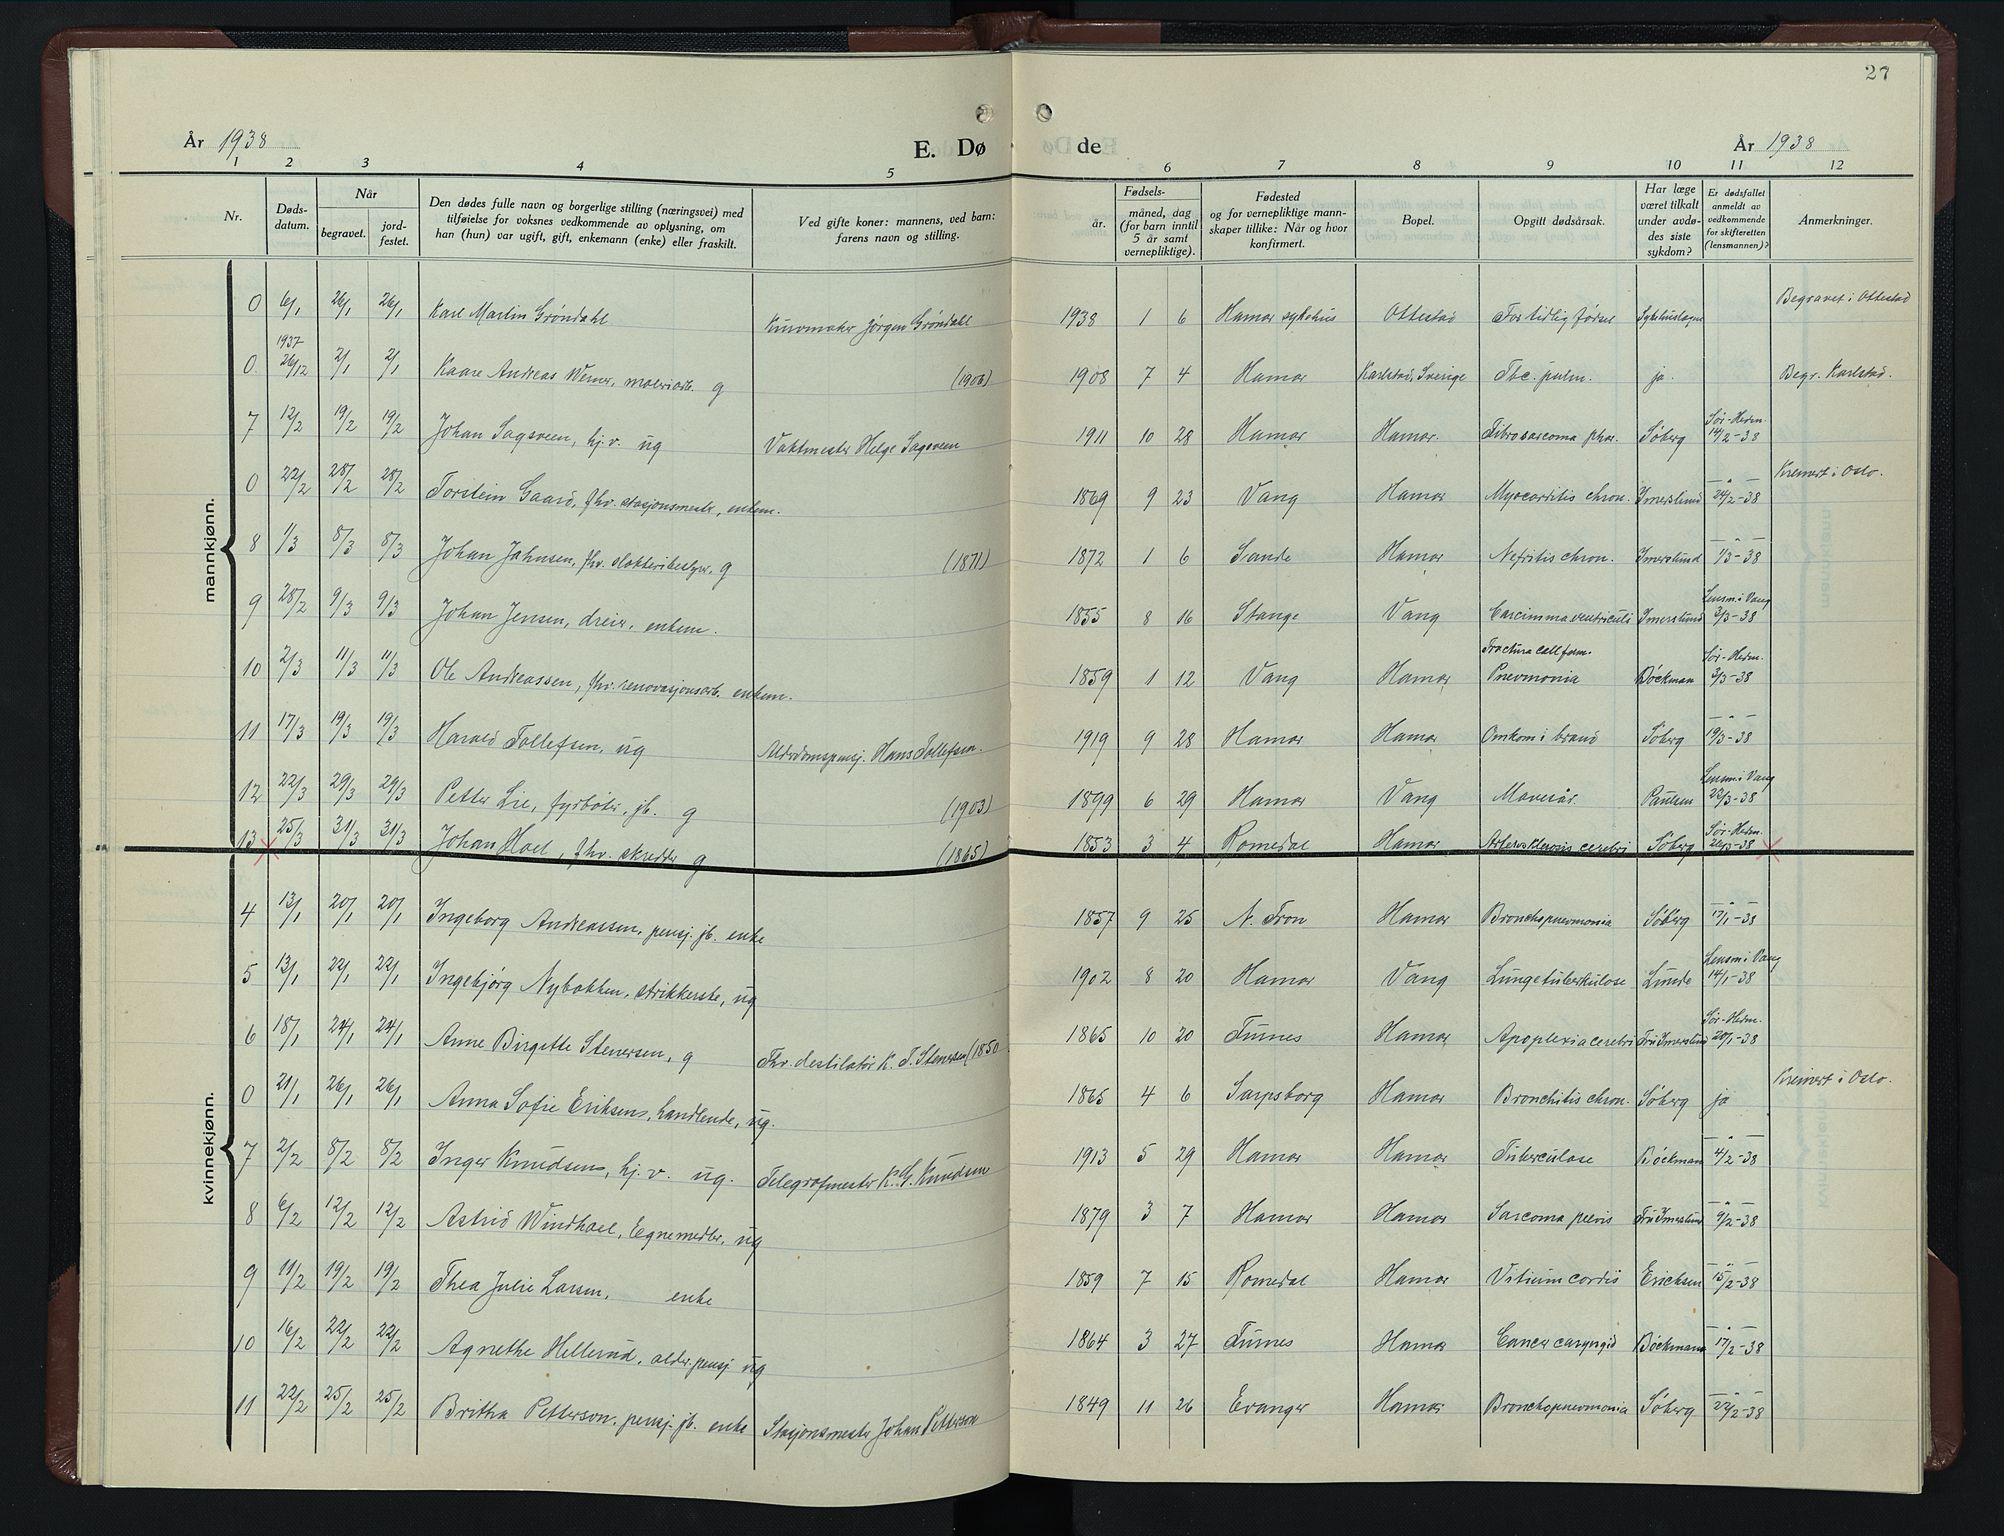 27
År 1938
E. Døde
År 1938
1 2 3 4 5 6 7 8 9 10 11 12
Nr.
Døds-
datum.
Når
begravet.
jord-
festet.
Den dødes fulle navn og borgerlige stilling (næringsvei) med
tilføielse for voksnes vedkommende av oplysning, om
han (hun) var ugift, gift, enkemann (enke) eller fraskilt.
Ved gifte koner: mannens, ved barn:
farens navn og stilling.
Fødsels-
år.
måned, dag
(for barn inntil
5 år samt
vernepliktige).
Fødested
og for vernepliktige mann-
skaper tillike: Når og hvor
konfirmert.
Bopel.
Opgitt dødsårsak.
Har læge
været tilkalt
under avdø-
des siste
sykdom?
Er dødsfallet
anmeldt av
vedkommende
for skifteretten
(lensmannen)?
Anmerkninger.
mannkjønn.
0 6/1 26/1 26/1 Karl Martin Grøndahl Jørgen Grøndahl 1938 1 6 Hamar sykehus Ottestad For tidlig fødsel Begravet i Ottestad
1937
0. 26/12 2/1 2/1 Kaare Andreas Werner, g 1908 7 4 Hamar Karlstad, Sverige Tbc. pulm. ja. Begr. Karlstad.
7 12/2 19/2 19/2 Johan Sagsveen, hj.v. ug Vaktmester Helge Sagsveen 1911 10 28 Hamar Hamar. Fibrosarcoma phar. Søberg Sør-Hedm. 14/2-38
0 22/2 28/2 28/2 Torstein Gaard, fhv. stasjonsmester, enkem. 1869 9 23 Vang Hamar Myocarditis chron. Imerslund — " — 24/2-38 Kremert i Oslo.
8 1/3 8/3 8/3 Johan Jahnsen, fhv. slakteribestyrer, g (1871) 1872 1 6 Sande Hamar Nefritis chron. Imerslund — " — 1/3-38
9 28/2 9/3 9/3 Johan Jensen, dreier, enkem. 1855 8 16 Stange Vang Carcinoma ventriculi Imerslund Lensm. i Vang 3/3-38
10 2/3 11/3 11/3 Ole Andreassen, fhv. renovasjonsarb. enkem. 1859 1 12 Vang Hamar Fractura coll. fem. Pneumonia Bøckman Sør-Hedm. 3/3-38
11 17/3 19/3 19/3 Harald Tollefsen, ug Alderdomspensj. Hans Tollefsen. 1919 9 28 Hamar Hamar Omkom i brand Søberg — " — 19/3-38
12 22/3 29/3 29/3 Petter Lie, fyrbøter, jb. g (1903) 1899 6 29 Hamar Vang Mavesår. Paulsen Lensm. i Vang 23/3-38
13 25/3 31/3 31/3 Johan Hoel, fhv. skredder g (1865) 1853 3 4 Romedal Hamar Arteriosklerosis cerebri Søberg Sør-Hedm. 26/3-38
kvinnekjønn.
4 13/1 20/1 20/1 Ingeborg Andreassen, pensj. jb. enke 1857 9 25 N. Fron Hamar Bronchopneumonia Søberg — " — 17/1-38
5 13/1 22/1 22/1 Ingebjørg Nybakken, strikkerske, ug 1902 8 20 Hamar Vang Lungetuberkulose Lunde Lensm i Vang 14/1-38
6 18/1 24/1 24/1 Anne Birgitte Stenersen, g Fhv. destilatør K. T. Stenersen (1850 1865 10 20 Furnes Hamar Apoplexia cerebri Frú Imerslund Sør-Hedm. 20/1-38
0 21/1 26/1 26/1 Anna Sofie Eriksens, handlende, ug. 1865 4 6 Sarpsborg Hamar Bronchitis chron. Søberg ja Kremert i Oslo.
7 2/2 8/2 8/2 Inger Knudsens, hj.v. ug. Telegrafmester K. G. Knudsen 1913 5 29 Hamar Hamar Tuberculose Bøckman — " — 4/2-38
8 6/2 12/2 12/2 Astrid Windhael, Egnemedbr, ug 1879 3 7 Hamar Hamar Sarcoma pelvis Frú Imerslund — " — 9/2-38
9 11/2 19/2 19/2 Thea Julie Larsen, enke 1859 7 15 Romedal Hamar Vitium cordis Ericksen — " — 15/2-38
10 16/2 22/2 22/2 Agnethe Hellerud, alder. pensj ug 1864 3 27 Furnes Hamar Cancer Bøckman — " — 17/2-38
11 22/2 25/2 25/2 Britha Petterson, pensj. jb. enke Stasjonsmester Johan Petterson 1849 11 26 Evanger Hamar Bronchopneumonia Søberg — " — 22/2-38